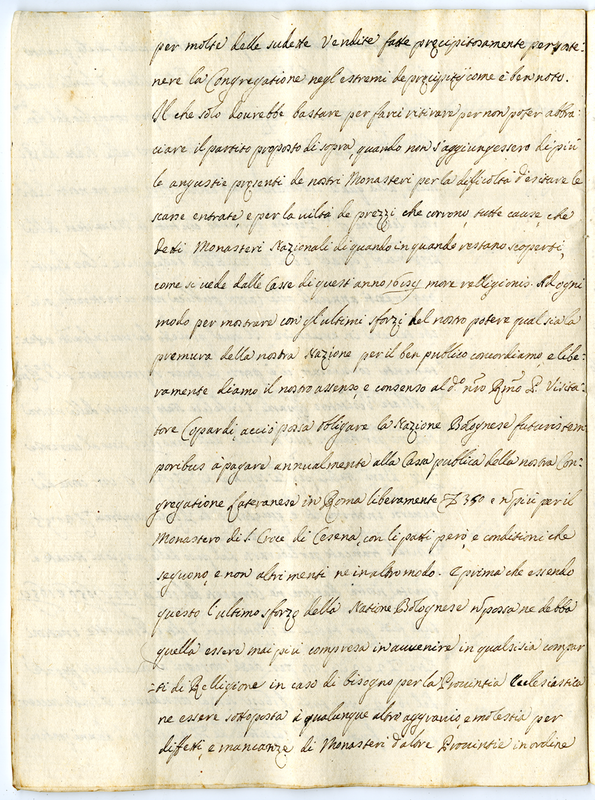 per molte delle sudette Vendite fatte præcipitosamente per sonte:
nere la Congregatione negl'estremi de præcipitij come è ben noto.
Il che solo dourebbe bastare per farci ritirare per non poter abbra:
ciare il partito proposto di sopra, quando non s'aggiungessero di più
le angustie presenti de nostri Monasteri per la difficoltà d'esitare le
scarse entrate, e per la viltà de prezzi che corrono, tutte cause, che
detti Monasteri Nazionali di quando in quando restano scoperti,
come si vede dalle Casse di quest'anno more relligionis. Ad ogni
modo per mostrare con gl'ultimi sforzi del nostro potere qual sia la
premura della nostra Nazione per il ben publico concordiamo, e libe:
ramente diamo il nostro assenso, e consenso al d.º nrõ Rmõ P. Visita:
tore Copardi, acciò possa obligare la Nazione Bolognese futuris tem
poribus à pagare annualmente alla Cassa publica della nostra Con:
gregatione Lateranese in Roma liberamente 350 e nõ più per il
Monastero di S. Croce di Cosena, con li patti però, e conditioni che
seguono, e non altrimenti ne in altro modo. E prima che essendo
questo l'ultimo sforzo della Natione Bolognese nõ possa ne debba
quella essere mai più compresa in auvenire in qualsisia compar
ti di Relligione in caso di bisogno per la Prouintia Ecclesiastica
ne essere sottoposta à qualunque altro aggravio e molestia per
diffetti, e mancanze di Monasteri d'altre Prouintie in ordine